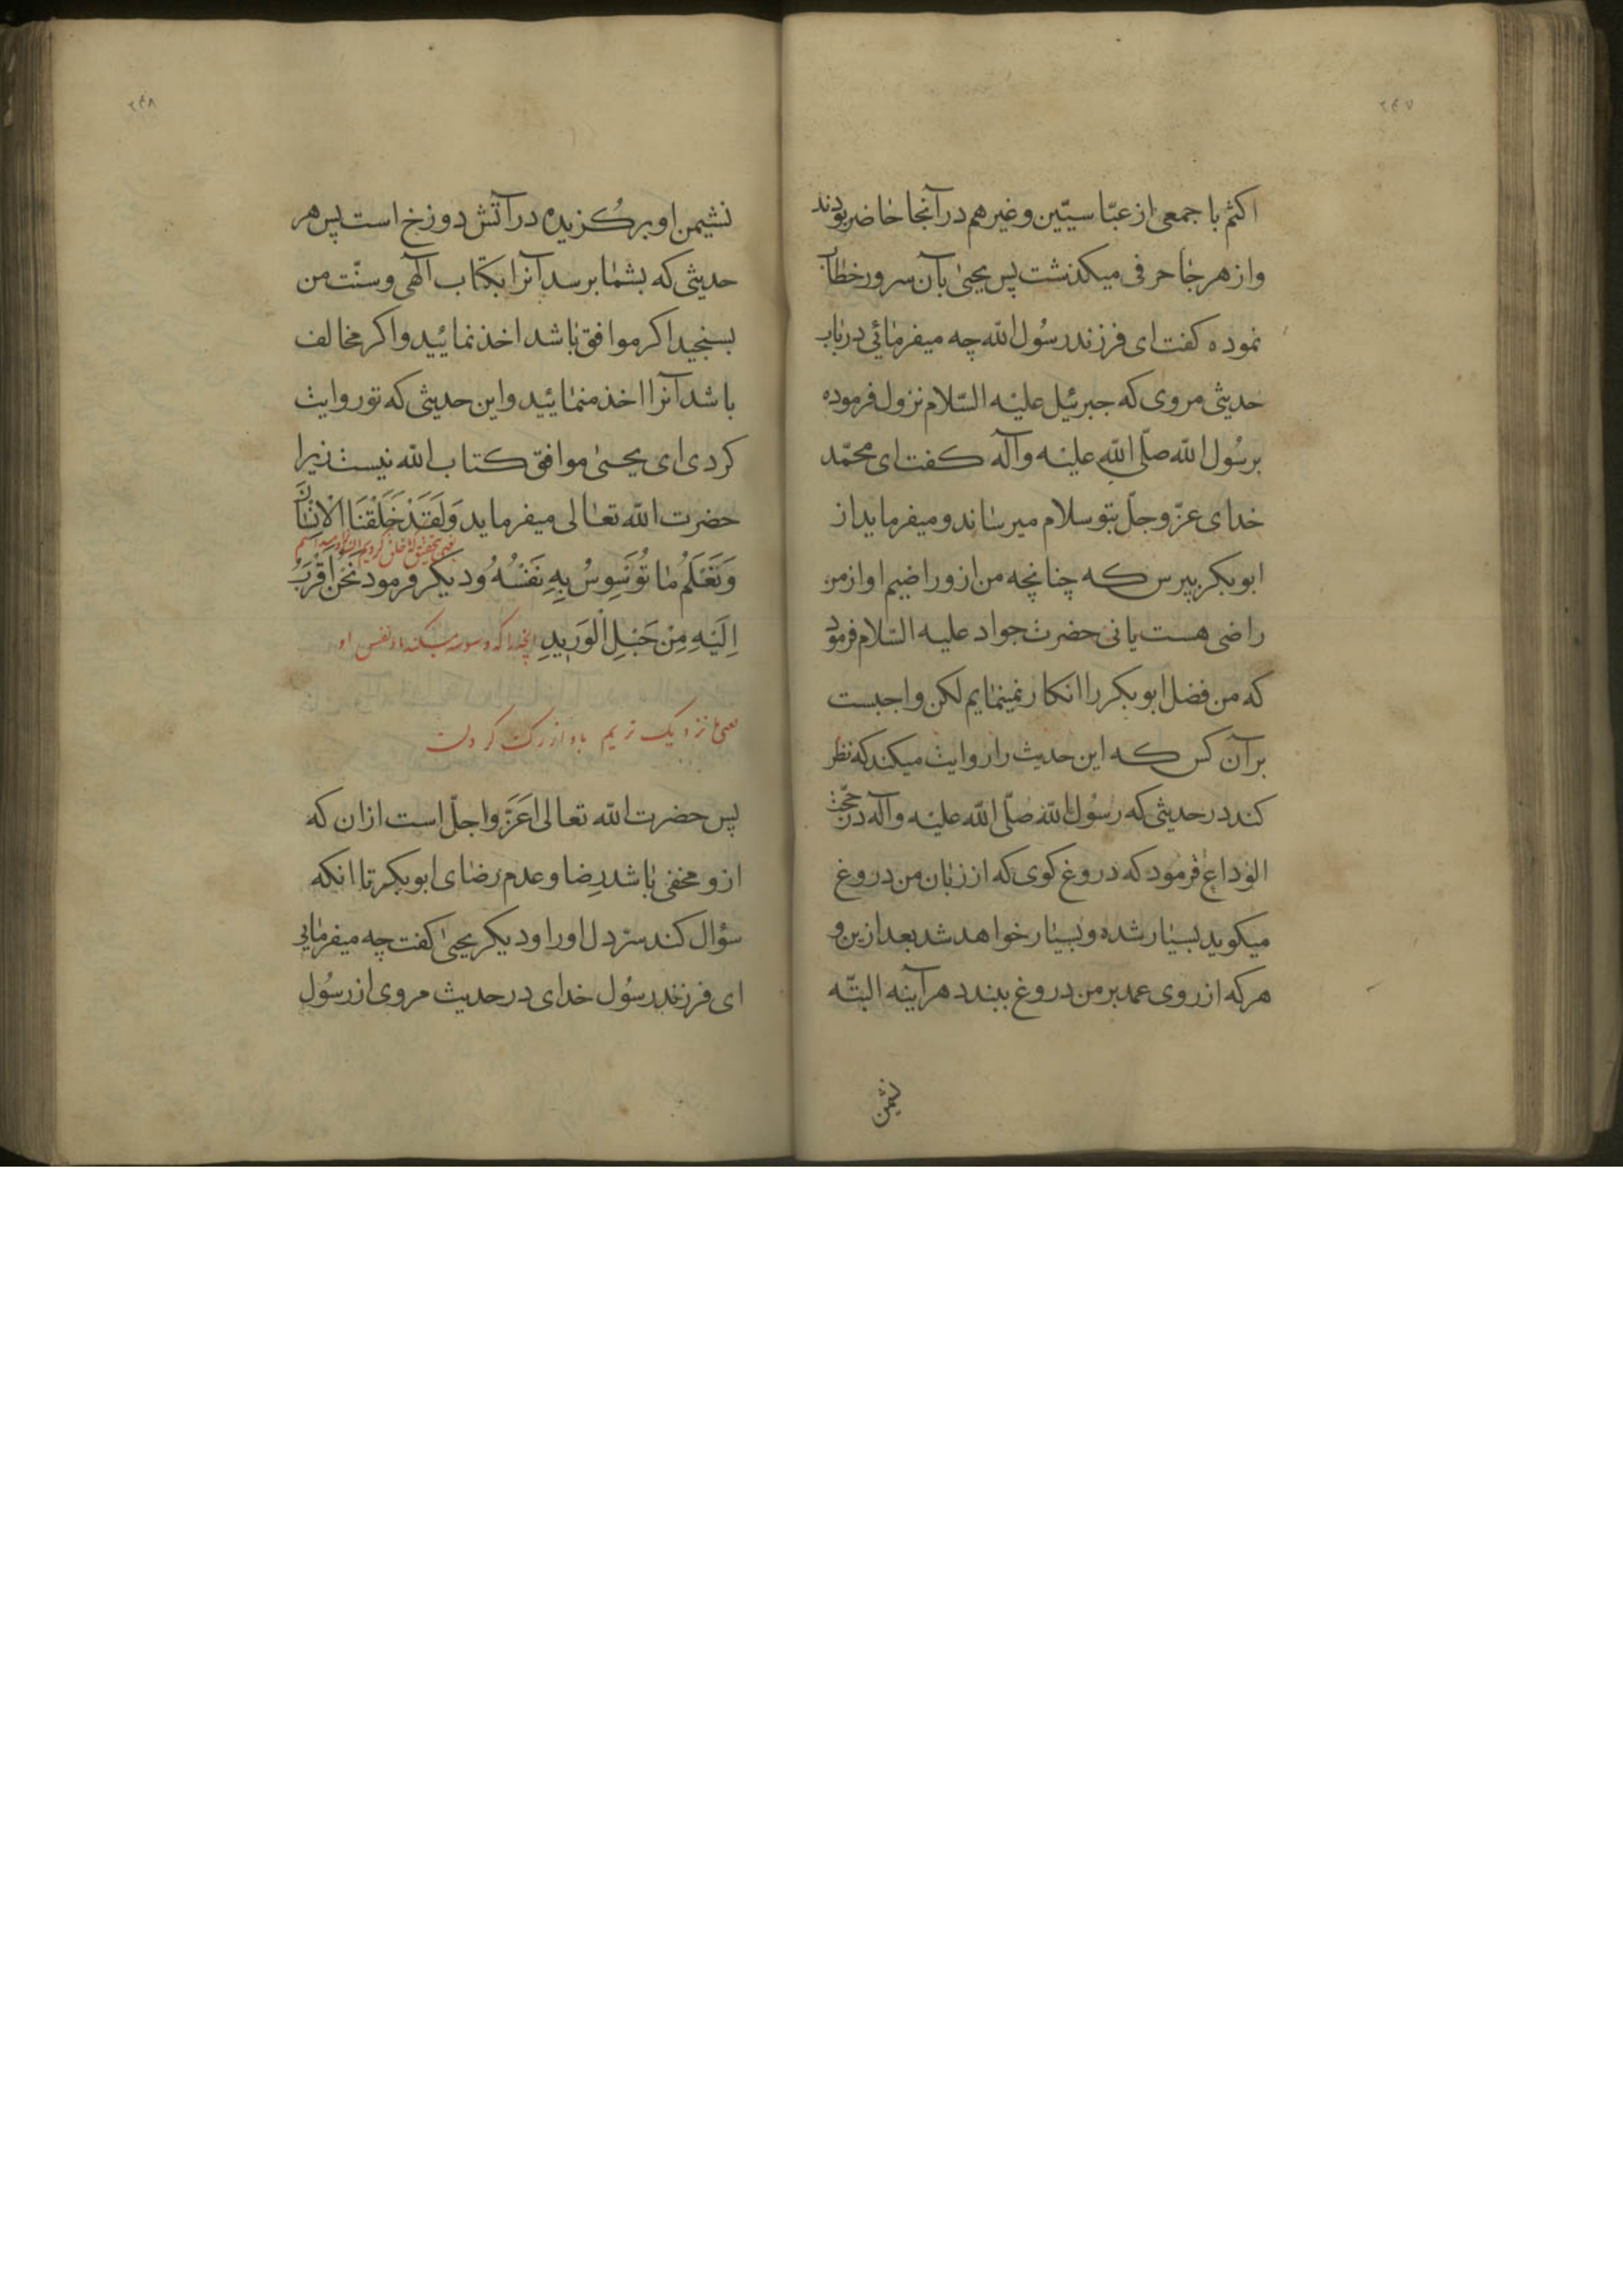 ۲۴۷
اکثم با جمعی از عبّاسیّین و غیرهم در آنجا حاضر بودند
و از هر جا حرفی میکذشت پس یحیی بآن سرور خطاب
نموده کفت ای فرزند رسُول الله چه میفرمائی در باب
حدیثی مروی که جبرئیل علیه السّلام نزول فرموده
برسُول الله صلّی الله علیه وآله کفت ای محمّد
خدای عزّ وجلّ بتو سلام میرساند و میفرماید از
ابوبکر بپرس که چنانچه من ازو راضیم او از من
راضی هست یا نی حضرت جواد علیه السّلام فرمود
که من فضل ابوبکر را انکار نمینمایم لکن واجبست
بر آن کس که این حدیث را روایت میکند که نظر
کند در حدیثی که رسُول الله صلّی الله علیه وآله در حجّت
الوداع فرمود که دروغ کوی که از زبان من دروغ
میکوید بسیار شده و بسیار خواهد شد بعد ازین و
هرکه از روی عمد بر من دروغ ببندد هرآینه البتّه
نشیمن
۲۴۸
نشیمن او برکُزیده در آتش دوزخ است پس هر
حدیثی که بشما برسد آنرا بکتاب آلهی و سنّت من
بسنجید اکر موافق باشد اخذ نمائید و اکر مخالف
باشد آنرا اخذ منمائید و این حدیثی که تو روایت
کردی ای یحیی موافق کتاب الله نیست زیرا
حضرت الله تعالی میفرماید وَلَقَدْ خَلَقْنَا الْاِنْسَانَ
یعنی بتحقیق که ما خلق کردیم انسان را و میدانیم
وَنَعْلَمُ مَا تُوَسْوِسُ بِهِ نَفْسُهُ و دیکر فرمود نَحْنُ اَقْرَبُ
اِلَيْهِ مِنْ حَبْلِ الْوَرِيدِ آنچه را که وسوسه میکند باو نفس او
یعنی ما نزدیک تریم باو از رک کردن
پس حضرت الله تعالی اَعَزّ و اجلّ است از ان که
ازو مخفی باشد رِضا و عدم رضای ابوبکر تا انکه
سؤال کند سرّ دل او را و دیکر یحیی کفت چه میفرمایی
ای فرزند رسُول خدای در حدیث مروی از رسُول